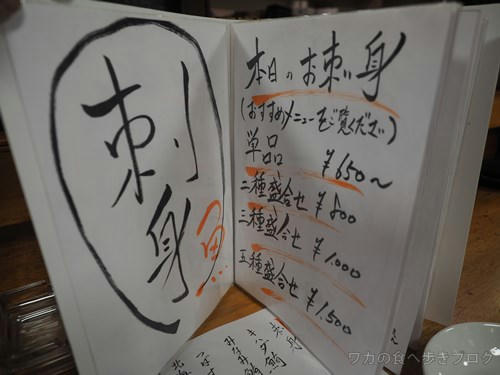 刺身
魚
本日のお刺身
(おすすめメニューをご覧ください)
単品 ¥650〜
二種盛合せ ¥800
三種盛合せ ¥1,000
五種盛合せ ¥1,500
ワカの食べ歩きブログ